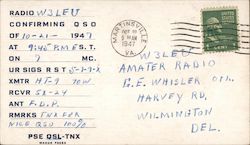 RADIO W3LEU
CONFIRMING QSO
OF 10-21- 1947
AT 9:45 P.M E S. T.
ON 7 MC.
UR SIGS R S T
XMTR HT-9 70W
RCVR SX-24
ANT F.D.P.
RMRKS TNX FER
NICE QSO 100%
PSE QSL-TNX
MARTINSVILLE
1947
VA.
W3LEU
AMATER RADIO
G.E. WHISLER OPR.
HARVEY RD,
WILMINGTON
DEL.